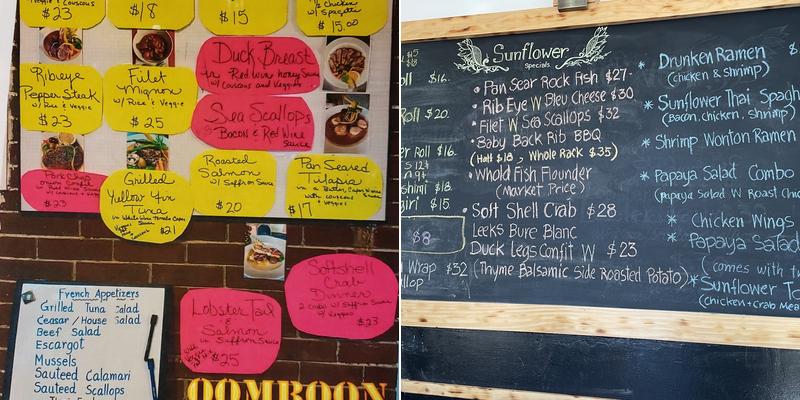 Veggie & Couscous
$23
$18
$15
Chicken
w/ Spagetti
$15.00
Ribeye
Pepper Steak
w/ Rice & Veggie
$23
Filet
Mignon
w/ Rice & Veggie
$25
Duck Breast
in Red Wine honey Sauce
w/ couscous and Veggies
Sea Scallops
Bacon & Red Wine
Sauce
Pork Chop
$23
Grilled
Yellow Fin
Tuna
$21
Roasted
Salmon
w/ Saffron Sauce
$20
Pan Seared
Tilapia
with couscous
& veggies
$17
Softshell
Crab
Dinner
2 crabs w/ Saffron Sauce
w/ Veggies
$23
Lobster Tail
&
Salmon
in Saffron Sauce
$25
French Appetizers
Grilled Tuna Salad
Ceasar / House Salad
Beef Salad
Escargot
Mussels
Sauteed Calamari
Sauteed Scallops
OOMROON
$15
$18
oll $16.
Roll $20.
er Roll $16.
$12
shimi $18.
giri $15.
$8
Wrap $32
Sunflower
Specials
• Pan Sear Rock Fish $27.
• Rib Eye W Bleu Cheese $30
• Filet W Sea Scallops $32
• Baby Back Rib BBQ
(Half $18, Whole Rack $35)
• Whold Fish Flounder
(Market Price)
• Soft Shell Crab $28
Leeks Bure Blanc
Duck Legs Confit W $23
(Thyme Balsamic Side Roasted Potato)
* Drunken Ramen $
(chicken & shrimp)
* Sunflower Thai Spagh
(Bacon, chicken, shrimp)
* Shrimp Wonton Ramen
* Papaya Salad Combo
(Papaya Salad W Roast Chic
* Chicken Wings
* Papaya Salad
(comes with
* Sunflower To
(chicken + Crab Mea